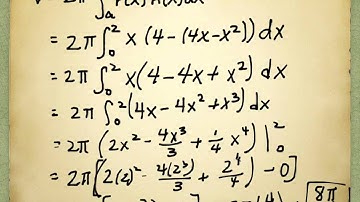 = 2π ∫₀² x (4-(4x-x²)) dx
= 2π ∫₀² x(4-4x+x²) dx
= 2π ∫₀² (4x-4x²+x³) dx
= 2π (2x² - 4x³/3 + 1/4 x⁴) |₀²
= 2π [2(2)² - 4(2³)/3 + 2⁴/4) - 0]
8π